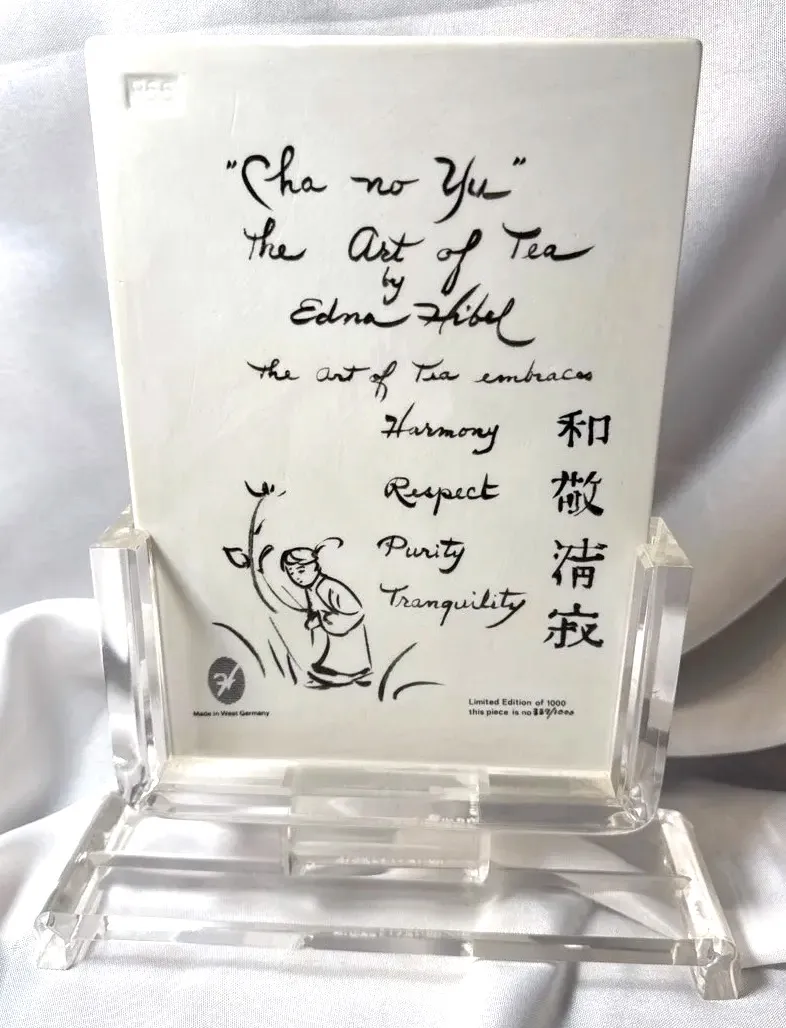 "Cha no Yu"
the Art of Tea
by
Edna Hibel
the art of Tea embraces
Harmony 和
Respect 敬
Purity 清
Tranquility 寂
Made in West Germany
Limited Edition of 1000
this piece is no